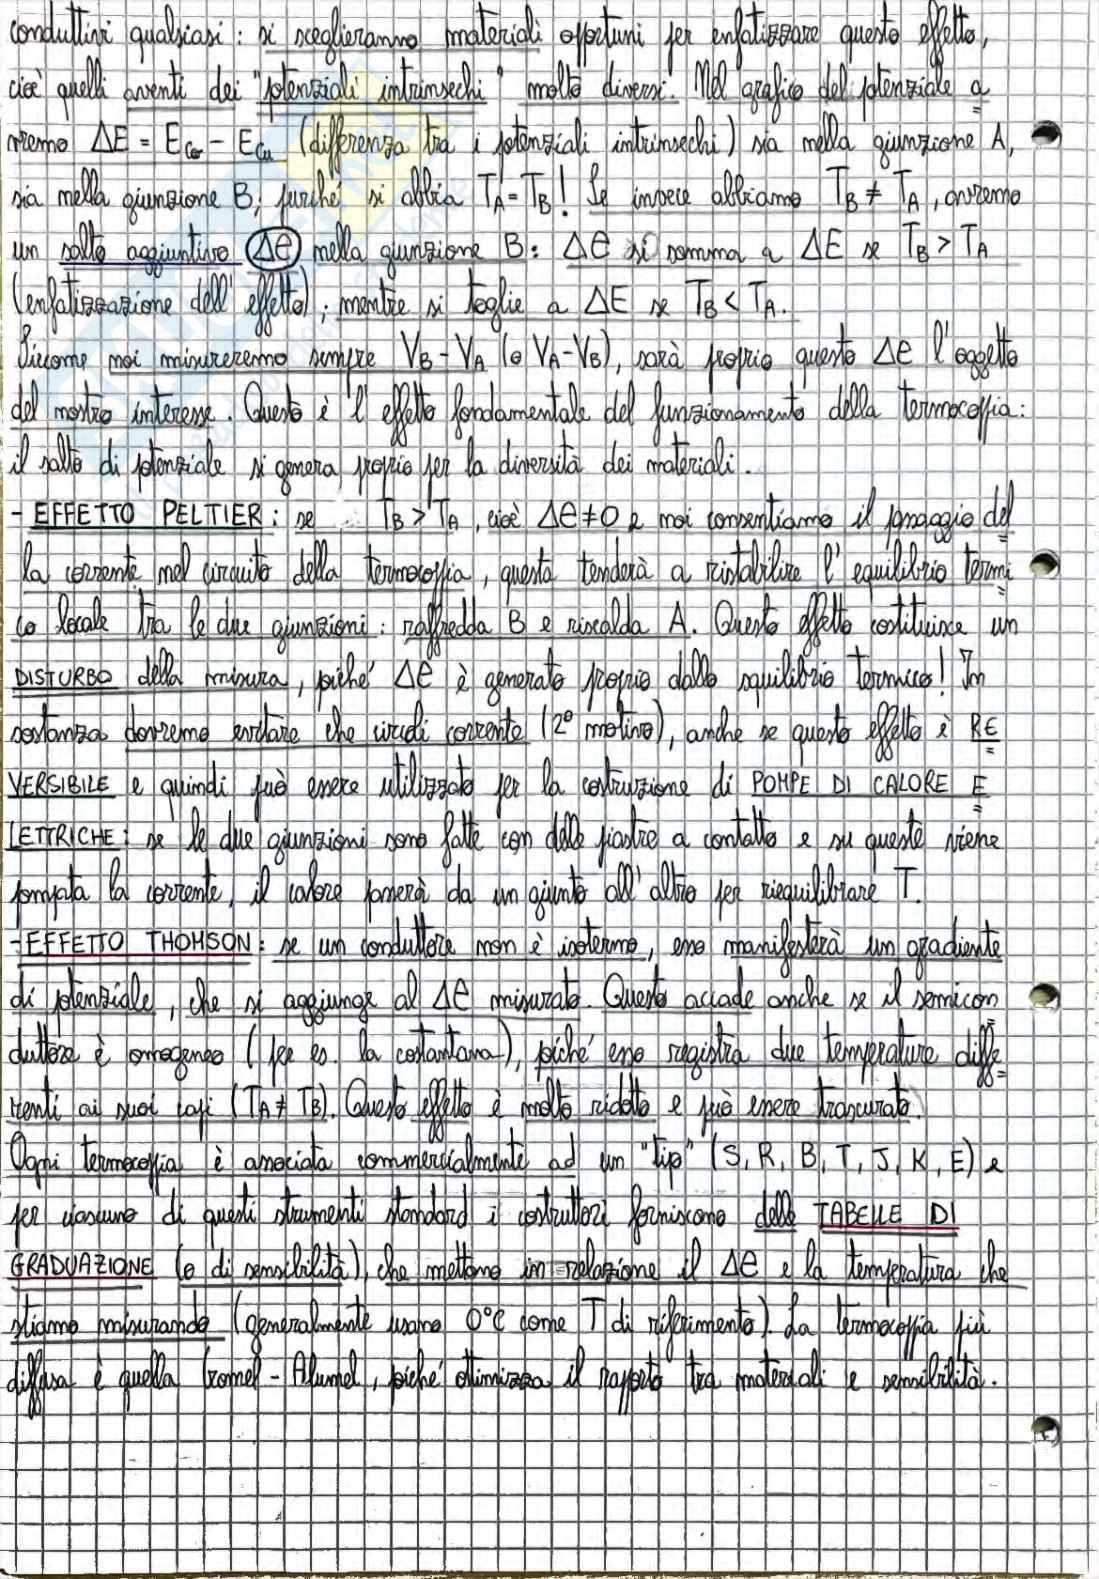 conduttivi qualsiasi : si sceglieranno materiali opportuni per enfatizzare questo effetto,
cioè quelli aventi dei "potenziali intrinsechi" molto diversi. Nel grafico del potenziale a
vremo ΔE = E_Co - E_Cu (differenza tra i potenziali intrinsechi) sia nella giunzione A,
sia nella giunzione B; purché si abbia T_A = T_B! Se invece abbiamo T_B ≠ T_A, avremo
un salto aggiuntivo Δe nella giunzione B: Δe si somma a ΔE se T_B > T_A
(enfatizzazione dell'effetto); mentre si toglie a ΔE se T_B < T_A.
Siccome noi misureremo sempre V_B - V_A (o V_A - V_B), sarà proprio questo Δe l'oggetto
del nostro interesse. Questo è l'effetto fondamentale del funzionamento della termocoppia:
il salto di potenziale si genera proprio per la diversità dei materiali.
- EFFETTO PELTIER: se T_B > T_A, cioè Δe ≠ 0 e noi consentiamo il passaggio del
la corrente nel circuito della termocoppia, questa tenderà a ristabilire l'equilibrio termi
co locale tra le due giunzioni: raffredda B e riscalda A. Questo effetto costituisce un
DISTURBO della misura, poiché Δe è generato proprio dallo squilibrio termico! In
sostanza dovremo evitare che circoli corrente (2° motivo), anche se questo effetto è RE
VERSIBILE e quindi può essere utilizzato per la costruzione di POMPE DI CALORE E
LETTRICHE: se le due giunzioni sono fatte con delle piastre a contatto e su queste viene
pompata la corrente, il calore passerà da un giunto all'altro per riequilibrare T.
- EFFETTO THOMSON: se un conduttore non è isotermo, esso manifesterà un gradiente
di potenziale, che si aggiunge al Δe misurato. Questo accade anche se il semicon
duttore è omogeneo (per es. la costantana), poiché esso registra due temperature diffe
renti ai suoi capi (T_A ≠ T_B). Questo effetto è molto ridotto e può essere trascurato.
Ogni termocoppia è associata commercialmente ad un "tipo" (S, R, B, T, J, K, E) e
per ciascuno di questi strumenti standard i costruttori forniscono delle TABELLE DI
GRADUAZIONE (o di sensibilità), che mettono in relazione il Δe e la temperatura che
stiamo misurando (generalmente usano 0°C come T di riferimento). La termocoppia più
diffusa è quella Cromel - Alumel, poiché ottimizza il rapporto tra materiali e sensibilità.